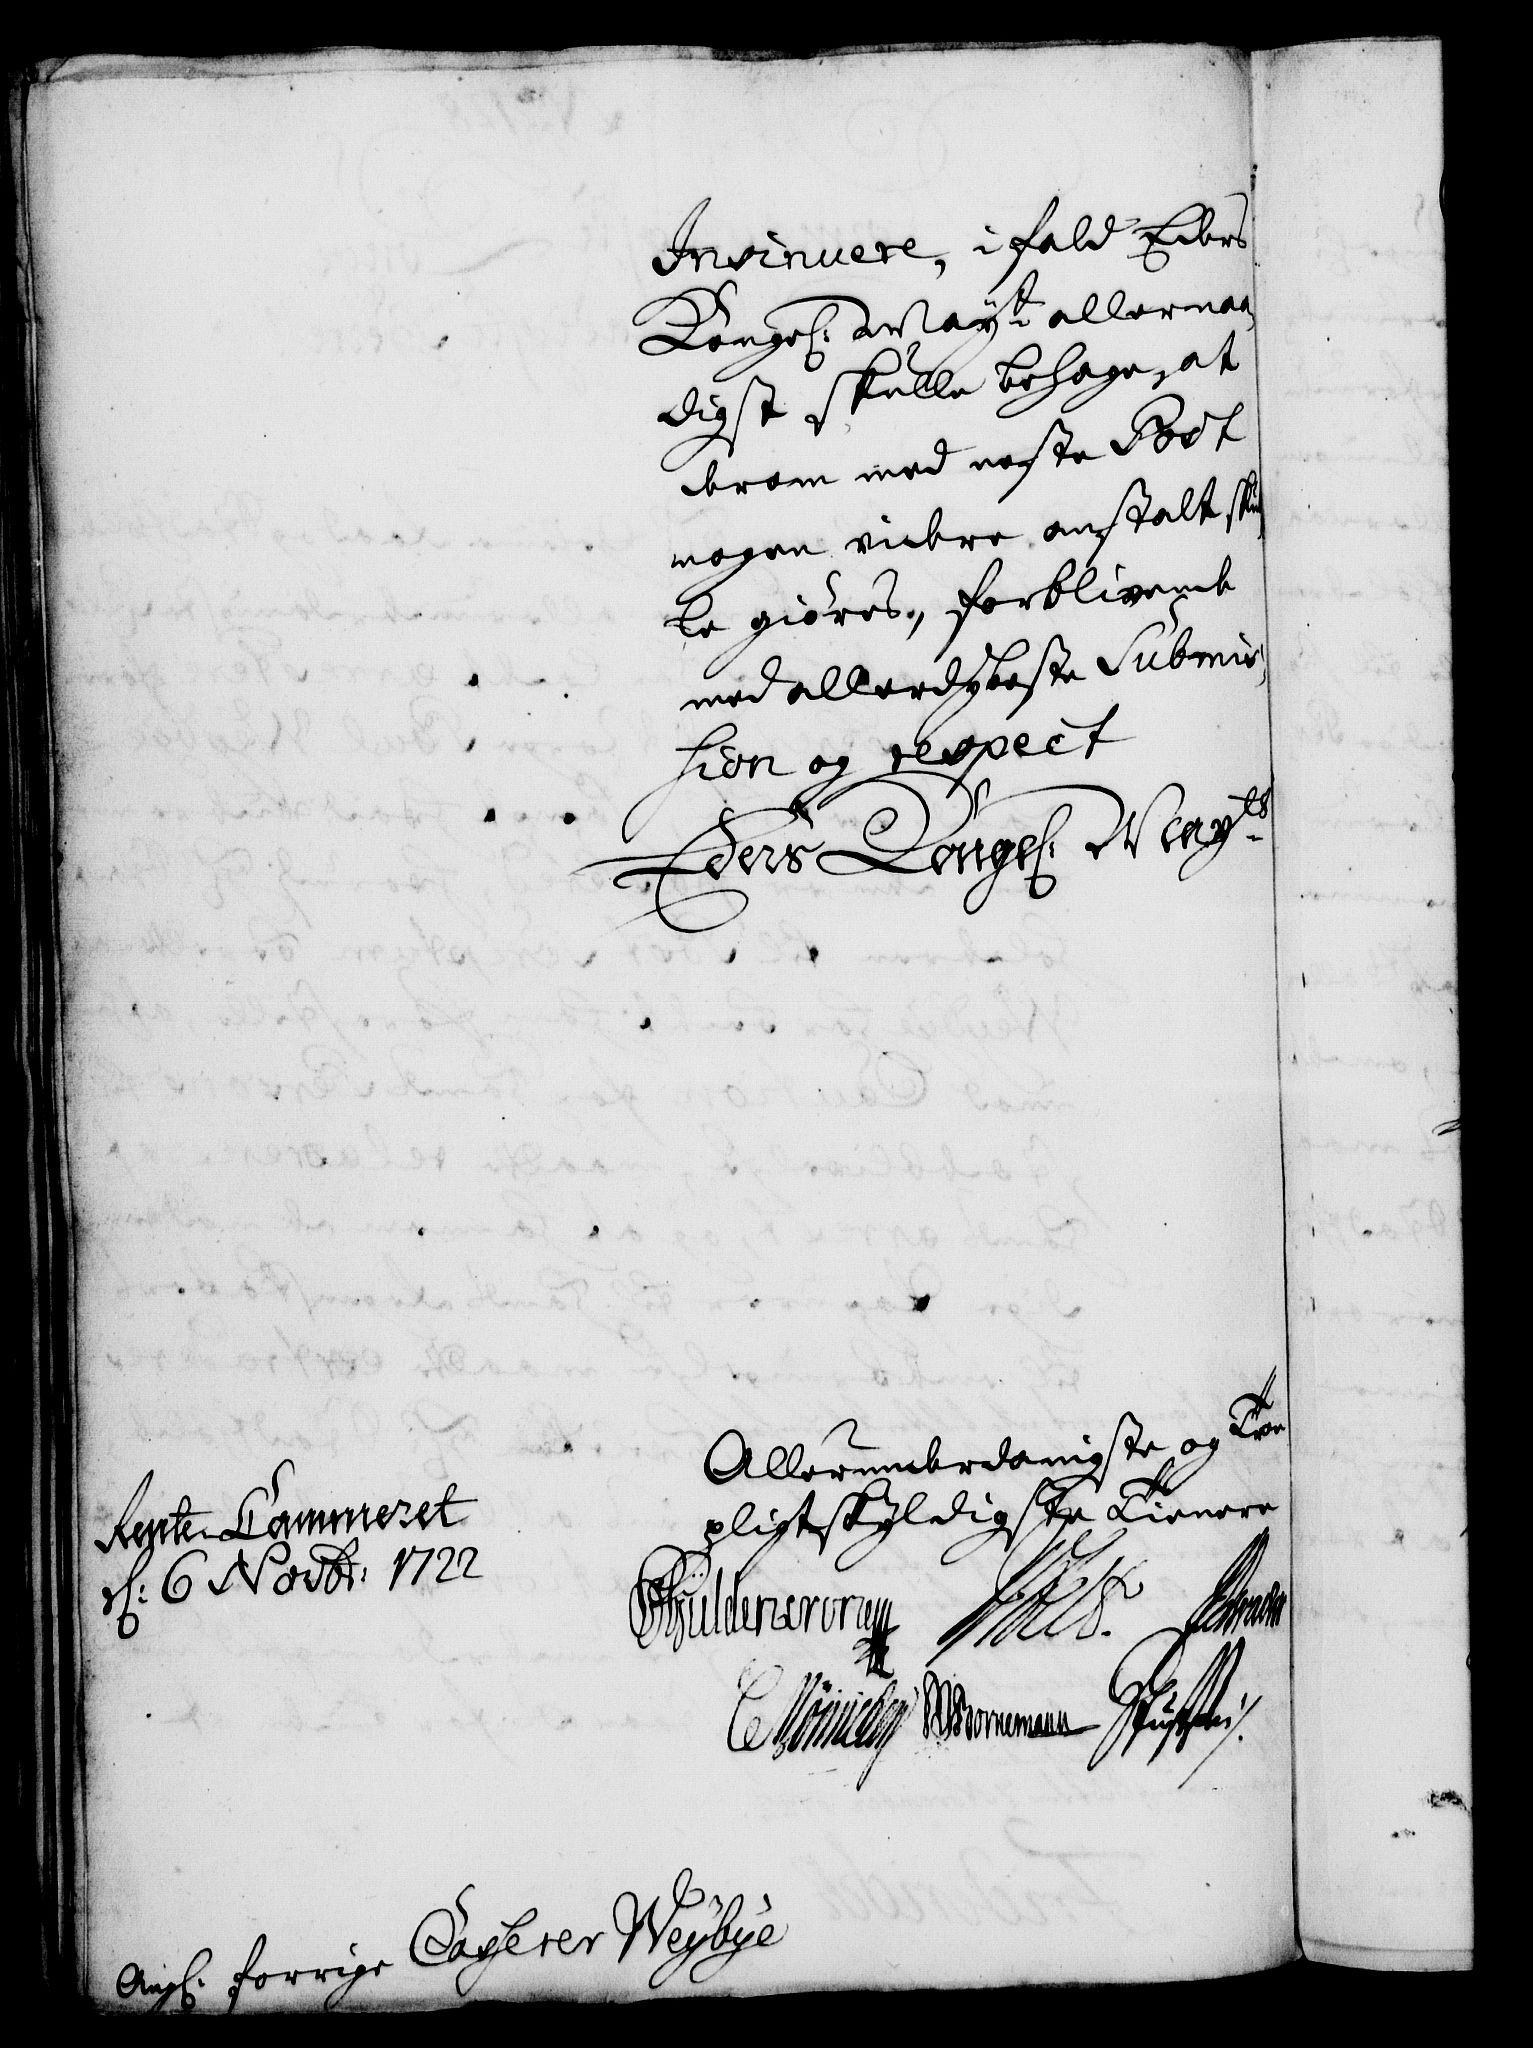 Insinuere, i fald Eders
Kongel: May:t allernaa,
digst skulle behage, at
derom med neste Post
nogen videre anstalt skul,
le giøres, forblivende
med allerdybeste Submis,
sion og respect
Eders Kongel: May:ts
Allerunderdanigste og Troe
pligtskyldigste Tienere
Rente-Cammeret
d: 6 Novbr: 1722
Güldencrone
CMönnichen WBornemann
Angl: forrige Casserer Weybye